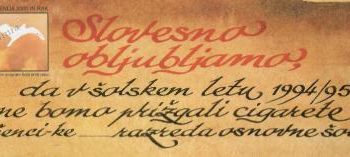 Slovesno
obljubljamo,
da v šolskem letu 1994/95
ne bomo prižgali cigarete
razreda osnovne šo